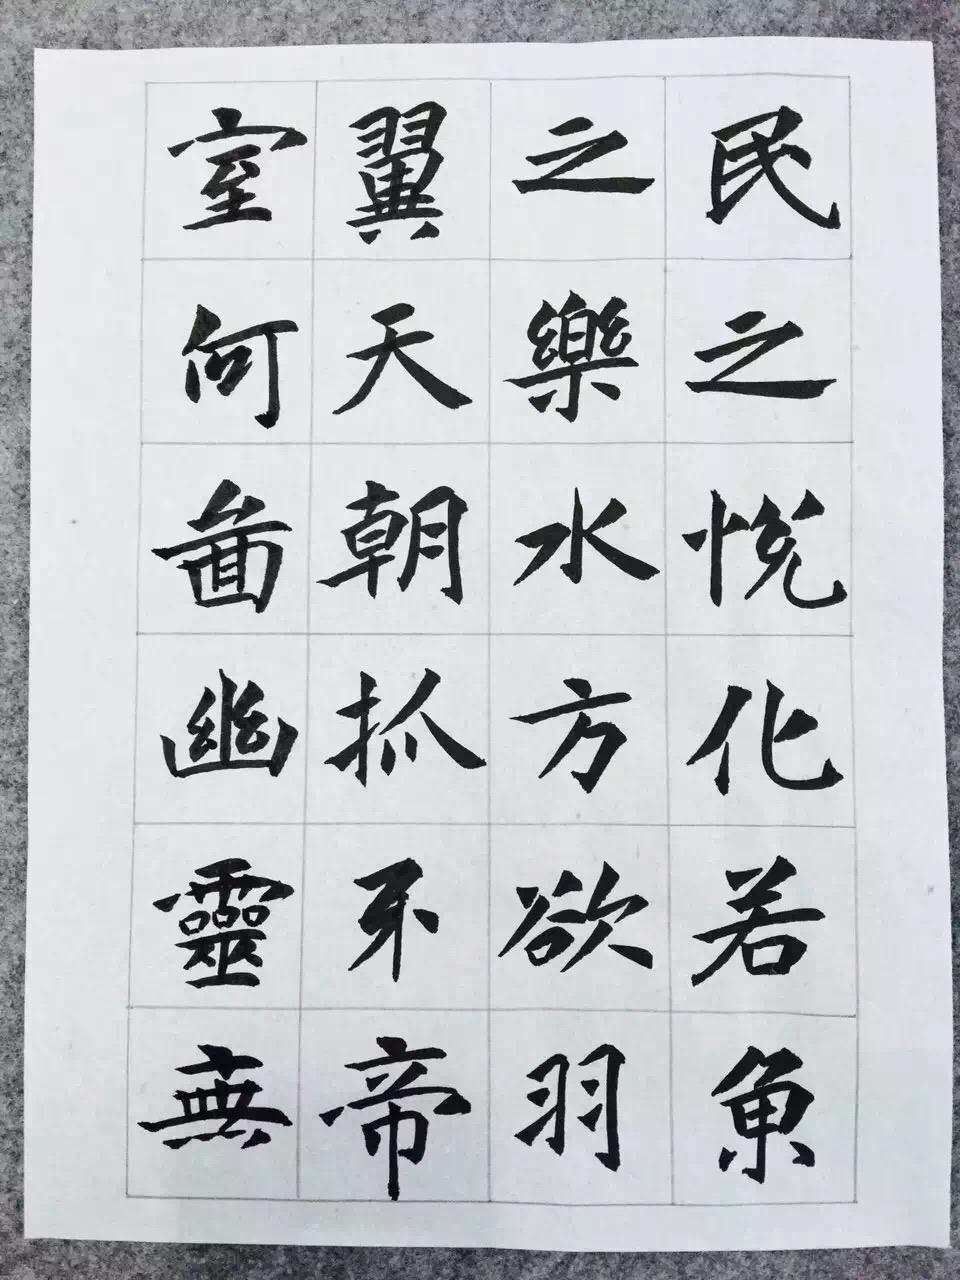 民之悦化若魚
之樂水方欲羽
翼天朝抓牙帝
室何啚幽靈無